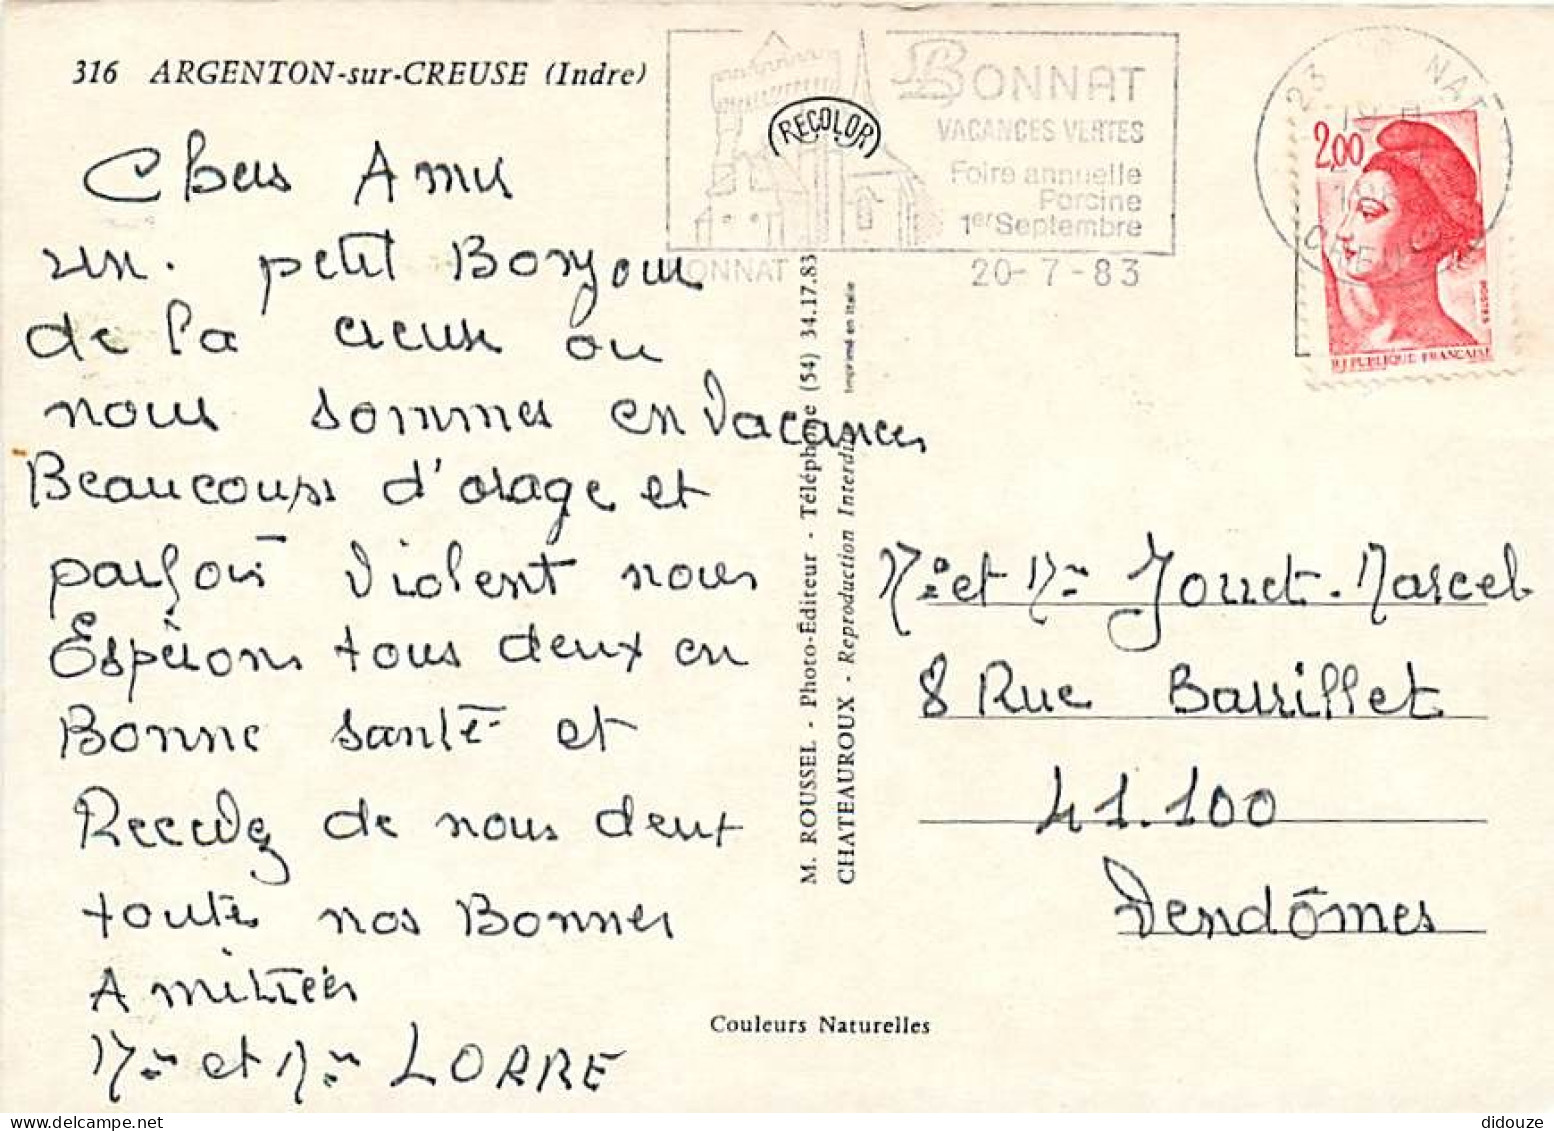 316 ARGENTON-sur-CREUSE (Indre)
BONNAT
VACANCES VERTES
Foire annuelle
Porcine
1er Septembre
BONNAT 20-7-83
RECOLOR
23 NAT
19 H
CREUSE
2,00
POSTES
REPUBLIQUE FRANÇAISE
Chers Amis
un. petit Bonjour
de la creuse ou
nous sommes en Vacances
Beaucoups d'orage et
parfois Violent nous
Espérons tous deux en
Bonne santé et
Recevez de nous deux
toute nos Bonnes
Amitiées
Mr et Mme LORRE
M. ROUSSEL - Photo-Éditeur - Téléphone (54) 34.17.83
CHATEAUROUX - Reproduction Interdite
Imprimé en Italie
Mr et Mme Jouet. Marcel
8 Rue Barrillet
41.100
Vendômes
Couleurs Naturelles
didouze